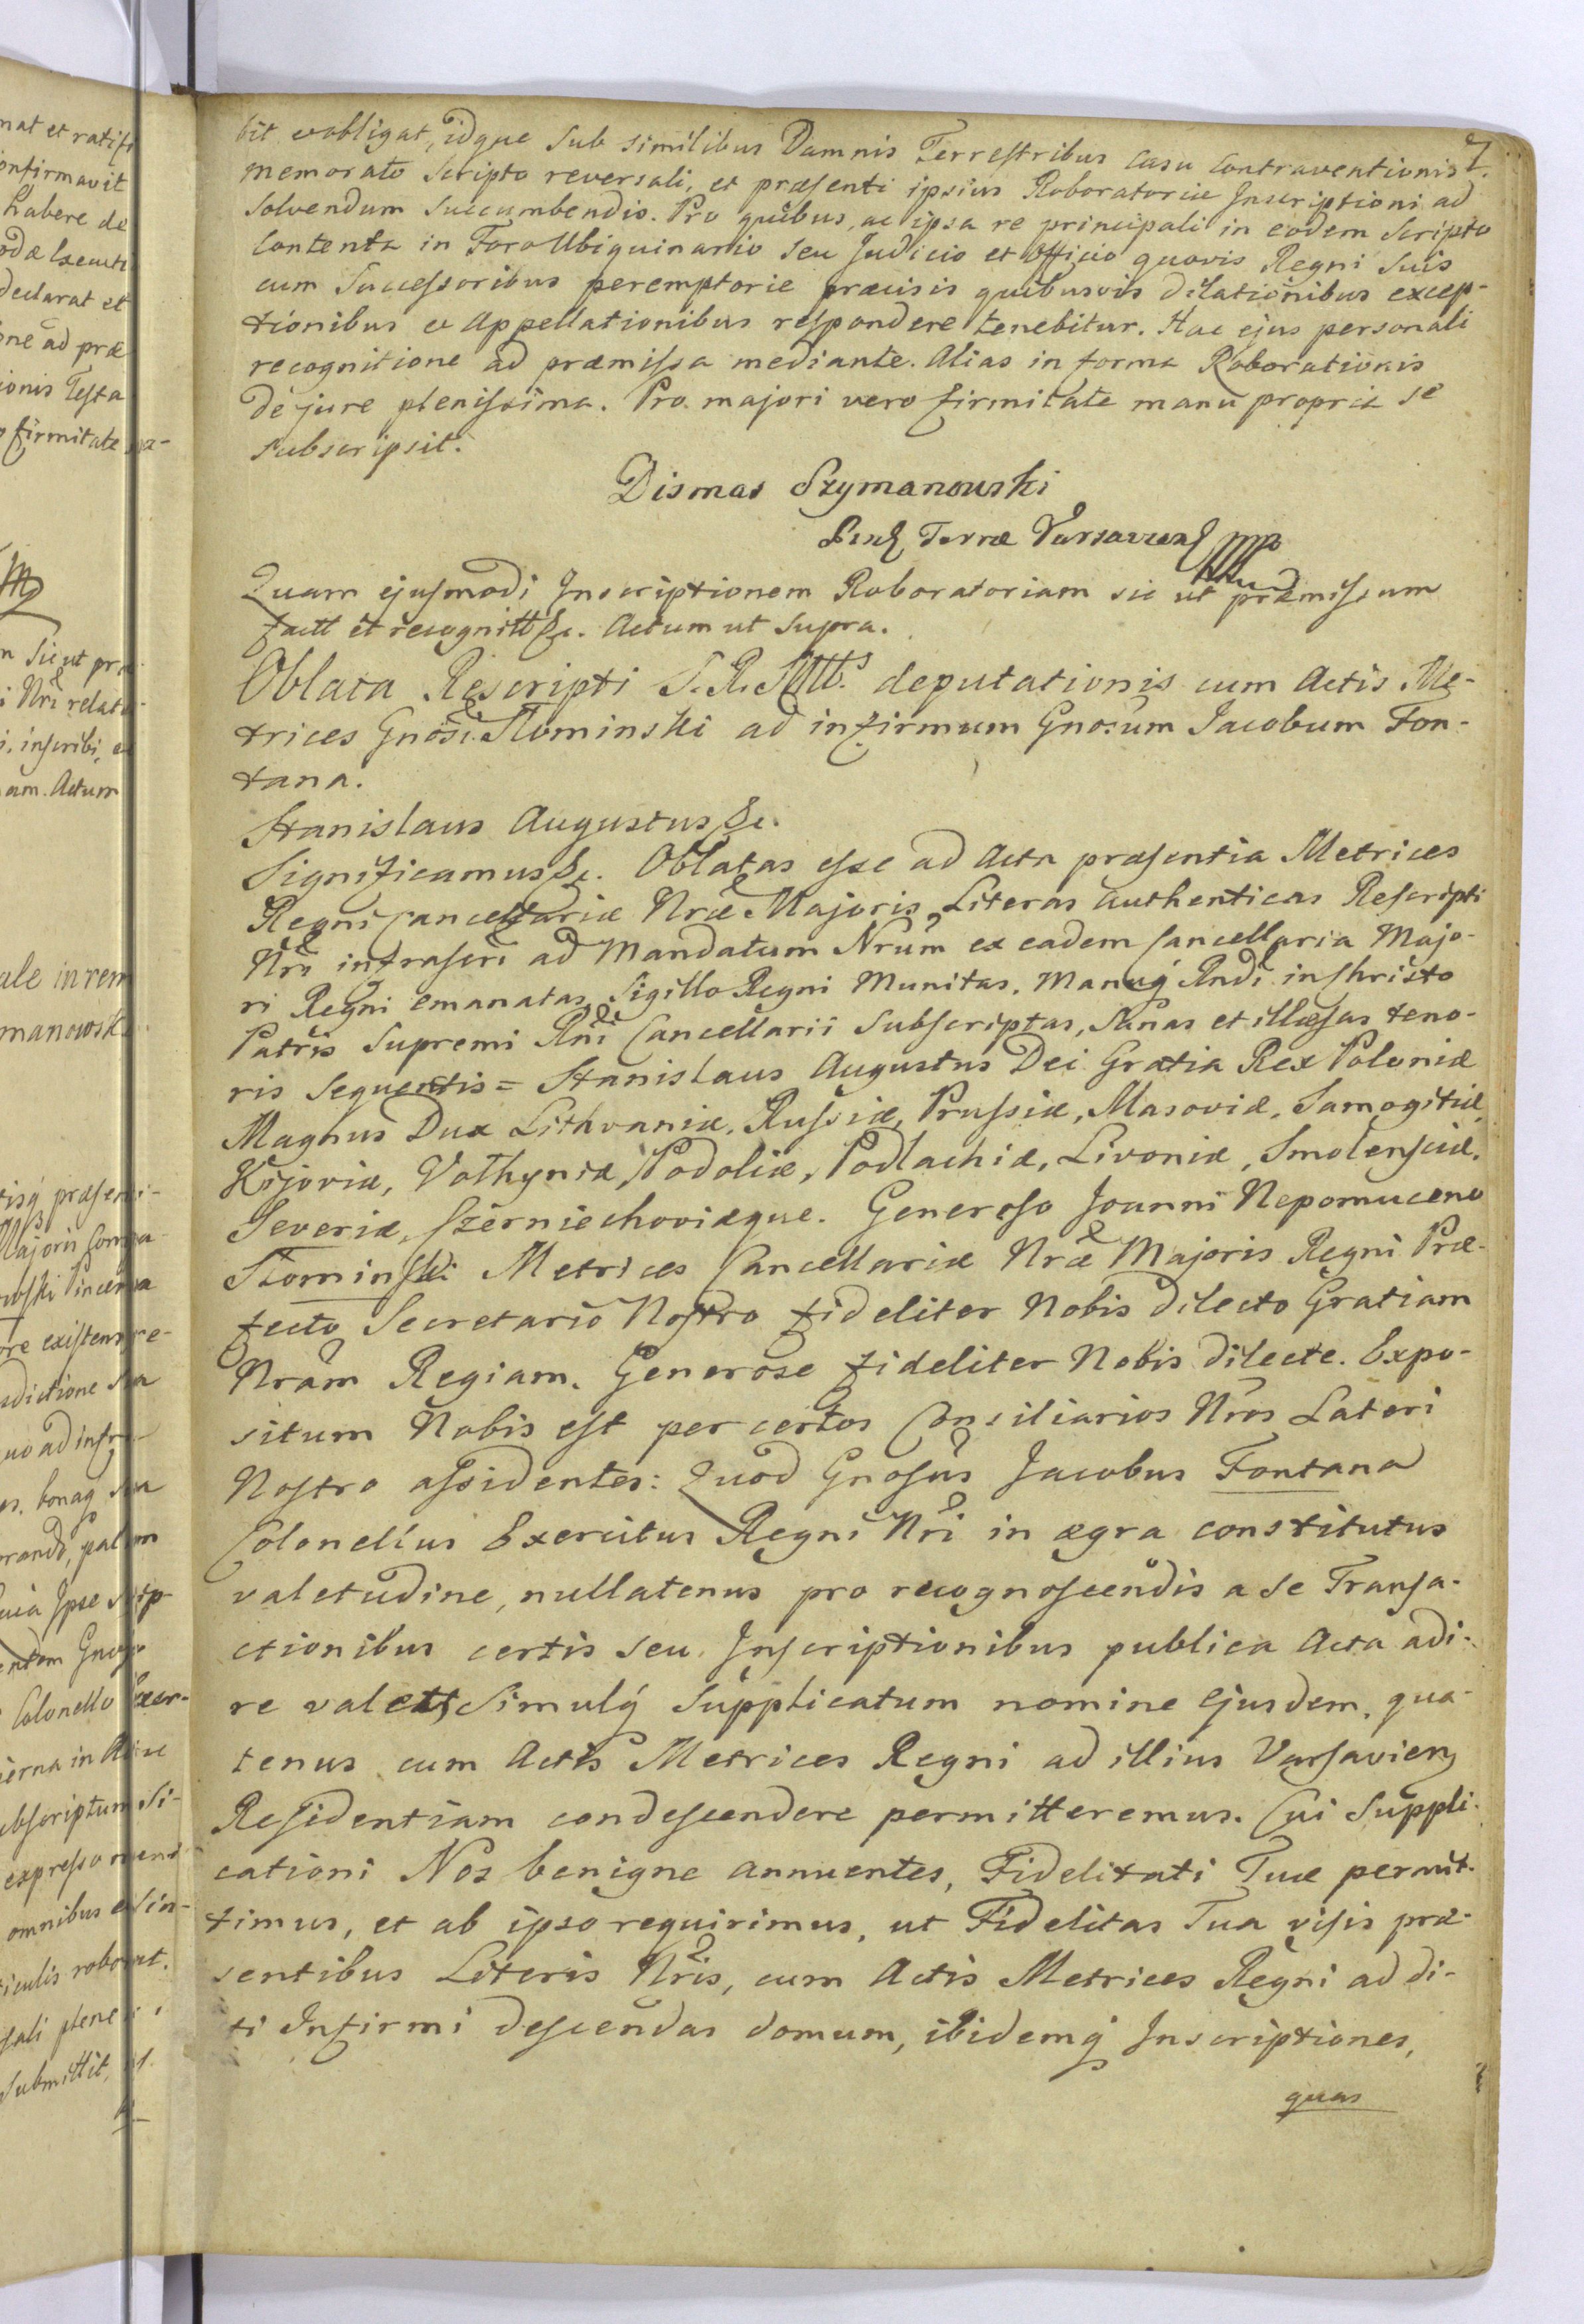 7.
bit et obligat, idque sub similibus Damnis Terrestribus casu contraventionis
memorato scripto reversali, et præsenti ipsius Roboratoriæ Inscriptioni ad
solvendum succumbendis. Pro quibus, ac ipsa re principali in eodem scripto
contenta in Foro Ubiquinario seu Judicio et Officio quovis Regni suis
cum Successoribus peremptorie præcisis quibusvis dilationibus excep-
tionibus et Appellationibus respondere tenebitur. Hac ejus personali
recognitione ad præmissa mediante. Alias in forma Roborationis
de jure plenissima. Pro majori vero firmitate manu propria se
subscripsit.
Dismas Szymanowski
Terræ Varsavien mp
Quam ejusmodi Inscriptionem Roboratoriam sic ut præmissum
factt et recognitt &c. Actum ut supra.
Oblata Rescripti S. R. Mtts deputationis cum Actis Me-
trices Gnosi Słominski ad infirmum Gnosum Jacobum Fon-
tana.
Stanislaus Augustus &c.
Significamus &c. Oblatas esse ad Acta præsentia Metrices
Regni Cancellariæ Nræ Majoris Literas authenticas Rescripti
Nri infrascri ad Mandatum Nrum ex eadem Cancellaria Majo-
ri Regni emanatas, Sigillo Regni Munitas, Manuq Rndi in Christo
Patris Supremi Rni Cancellarii Subscriptas, Sanas et illæsas teno-
ris sequentis = Stanislaus Augustus Dei Gratia Rex Poloniæ
Magnus Dux Lithvaniæ, Russiæ, Prussiæ, Masoviæ, Samogitiæ,
Kijoviæ, Volhyniæ, Podoliæ, Podlachiæ, Livoniæ, Smolensciæ,
Severiæ, Czerniechoviæque. Generoso Joanni Nepomuceno
Słominski Metrices Cancellariæ Nræ Majoris Regni Præ-
fecto Secretario Nostro fideliter Nobis dilecto Gratiam
Nram Regiam. Generose fideliter Nobis dilecte. Expo-
situm Nobis est per certos Consiliarios Nros Lateri
Nostro assidentes: Quod Gnosus Jacobus Fontana
Colonellus Exercitus Regni Nri in ægra constitutus
valetudine, nullatenus pro recognoscendis a se Transa-
ctionibus certis seu Inscriptionibus publica Acta adi-
re valet, Simulq Supplicatum nomine ejusdem, qua-
tenus cum Actis Metrices Regni ad illius Varsavien
Residentiam condescendere permitteremus. Cui Suppli-
cationi Nos benigne annuentes, Fidelitati Tuæ permit-
timus, et ab ipso requirimus, ut Fidelitas Tua visis præ-
sentibus Literis Nris, cum Actis Metrices Regni ad di-
ti Infirmi descendas domum, ibidemq Inscriptiones,
quas